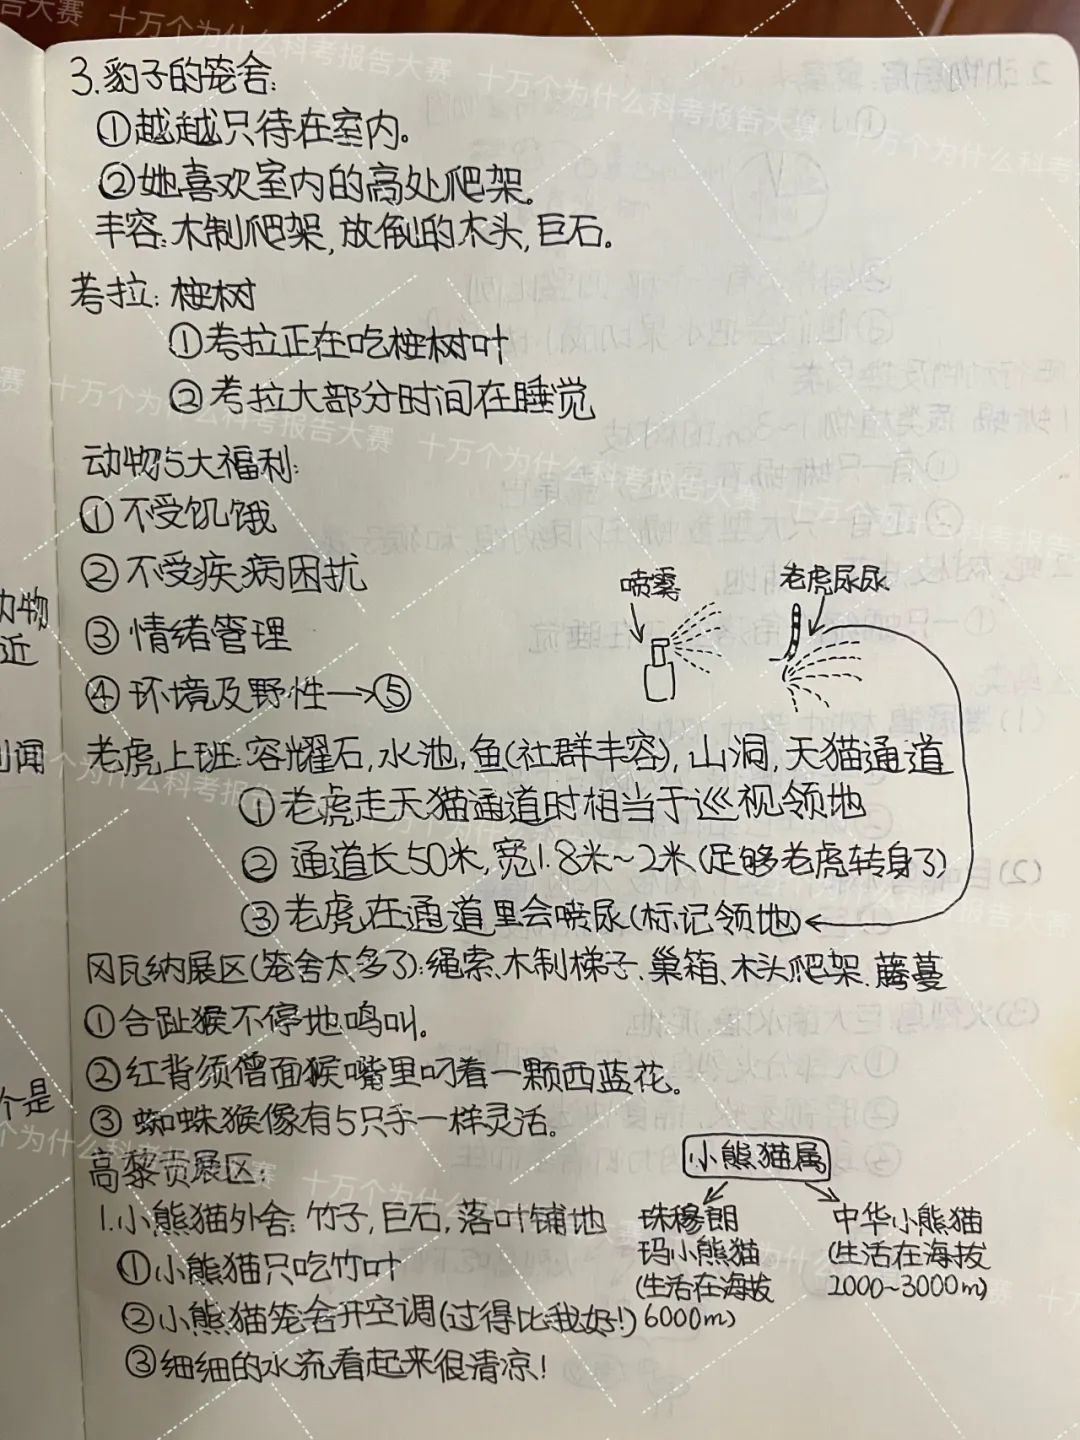 3.豹子的笼舍:
①越越只待在室内。
②她喜欢室内的高处爬架。
丰容:木制爬架,放倒的木头,巨石。
考拉: 桉树
①考拉正在吃桉树叶
②考拉大部分时间在睡觉
动物5大福利:
①不受饥饿
②不受疾病困扰
③情绪管理
④环境及野性→⑤
喷雾
老虎尿尿
老虎上班:容耀石,水池,鱼(社群丰容),山洞,天猫通道
①老虎走天猫通道时相当于巡视领地
②通道长50米,宽1.8米~2米(足够老虎转身了)
③老虎在通道里会喷尿(标记领地)
冈瓦纳展区(笼舍太多了):绳索、木制梯子、巢箱、木头爬架、藤蔓
①合趾猴不停地鸣叫。
②红背须僧面猴嘴里叼着一颗西蓝花。
③蜘蛛猴像有5只手一样灵活。
高黎贡展区:
1.小熊猫外舍:竹子,巨石,落叶铺地
①小熊猫只吃竹叶
②小熊猫笼舍开空调(过得比我好!)
③细细的水流看起来很清凉!
小熊猫属
珠穆朗
玛小熊猫
(生活在海拔
6000m)
中华小熊猫
(生活在海拔
2000~3000m)
动物
近
闻
个是
十万个为什么科考报告大赛